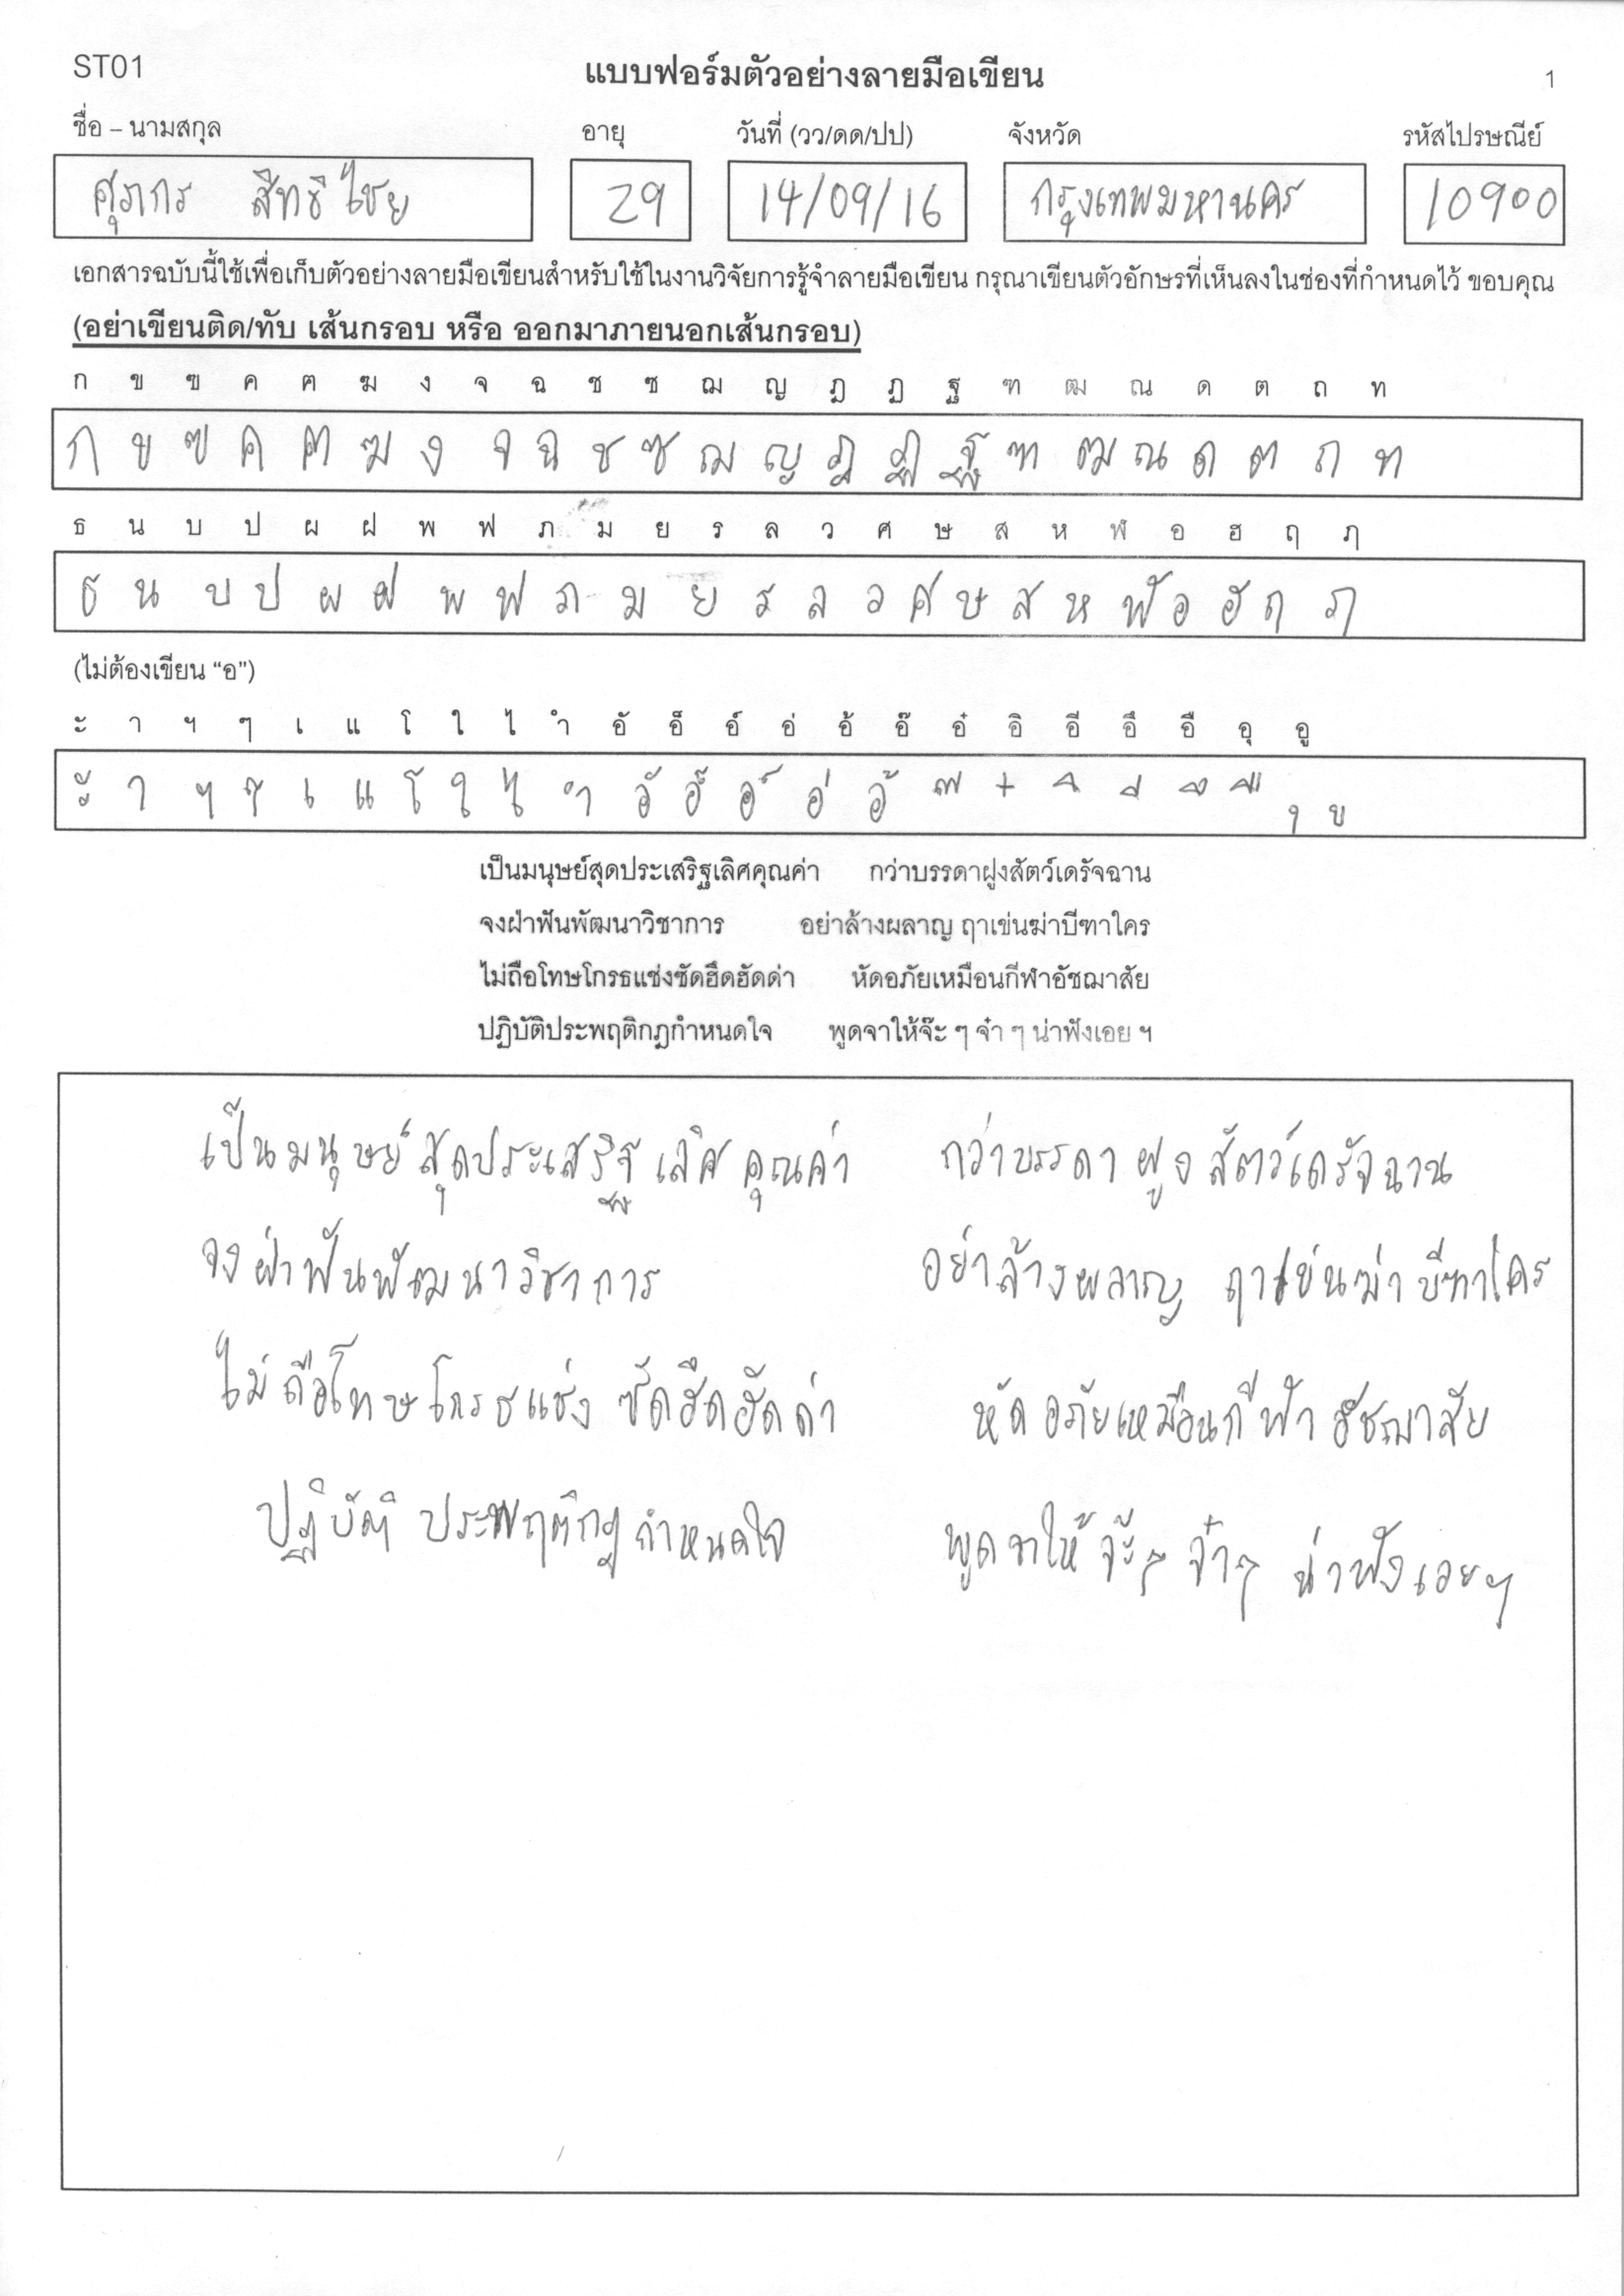 ST01 แบบฟอร์มตัวอย่างลายมือเขียน 1
ชื่อ – นามสกุล อายุ วันที่ (วว/ดด/ปป) จังหวัด รหัสไปรษณีย์
ศุภกร สิทธิไชย 29 14/09/16 กรุงเทพมหานคร 10900
เอกสารฉบับนี้ใช้เพื่อเก็บตัวอย่างลายมือเขียนสำหรับใช้ในงานวิจัยการรู้จำลายมือเขียน กรุณาเขียนตัวอักษรที่เห็นลงในช่องที่กำหนดไว้ ขอบคุณ
(อย่าเขียนติด/ทับ เส้นกรอบ หรือ ออกมาภายนอกเส้นกรอบ)
ก ข ฃ ค ฅ ฆ ง จ ฉ ช ซ ฌ ญ ฎ ฏ ฐ ฑ ฒ ณ ด ต ถ ท
ก ข ฃ ค ฅ ฆ ง จ ฉ ช ซ ฌ ญ ฎ ฏ ฐ ฑ ฒ ณ ด ต ถ ท
ธ น บ ป ผ ฝ พ ฟ ภ ม ย ร ล ว ศ ษ ส ห ฬ อ ฮ ฤ ภ
ธ น บ ป ผ ฝ พ ฟ ภ ม ย ร ล ว ศ ษ ส ห ฬ อ ฮ ฤ ภ
(ไม่ต้องเขียน “อ”)
ะ า ฯ ๆ เ แ โ ใ ไ ำ อั อ็ อ์ อ่ อ้ อ๊ อ๋ อิ อี อึ อื อุ อู
ะ า ฯ ๆ เ แ โ ใ ไ ำ อั อ็ อ์ อ่ อ้ ๊ ๋ ิ ี ึ ื ุ ู
เป็นมนุษย์สุดประเสริฐเลิศคุณค่า กว่าบรรดาฝูงสัตว์เดรัจฉาน
จงฝ่าฟันพัฒนาวิชาการ อย่าล้างผลาญ ฤาเข่นฆ่าบีฑาใคร
ไม่ถือโทษโกรธแช่งซัดฮึดฮัดด่า หัดอภัยเหมือนกีฬาอัชฌาสัย
ปฏิบัติประพฤติกฎกำหนดใจ พูดจาให้จ๊ะ ๆ จ๋า ๆ น่าฟังเอย ฯ
เป็นมนุษย์สุดประเสริฐ เลิศ คุณค่า กว่าบรรดา ฝูง สัตว์เดรัจฉาน
จงฝ่าฟันพัฒนาวิชาการ อย่าล้างผลาญ ฤาเข่นฆ่า บีฑาใคร
ไม่ถือโทษโกรธแช่ง ซัดฮึดฮัดด่า หัดอภัยเหมือนกีฬา อัชฌาสัย
ปฏิบัติ ประพฤติกฎ กำหนดใจ พูดจาให้ จ๊ะๆ จ๋าๆ น่าฟังเอยฯ